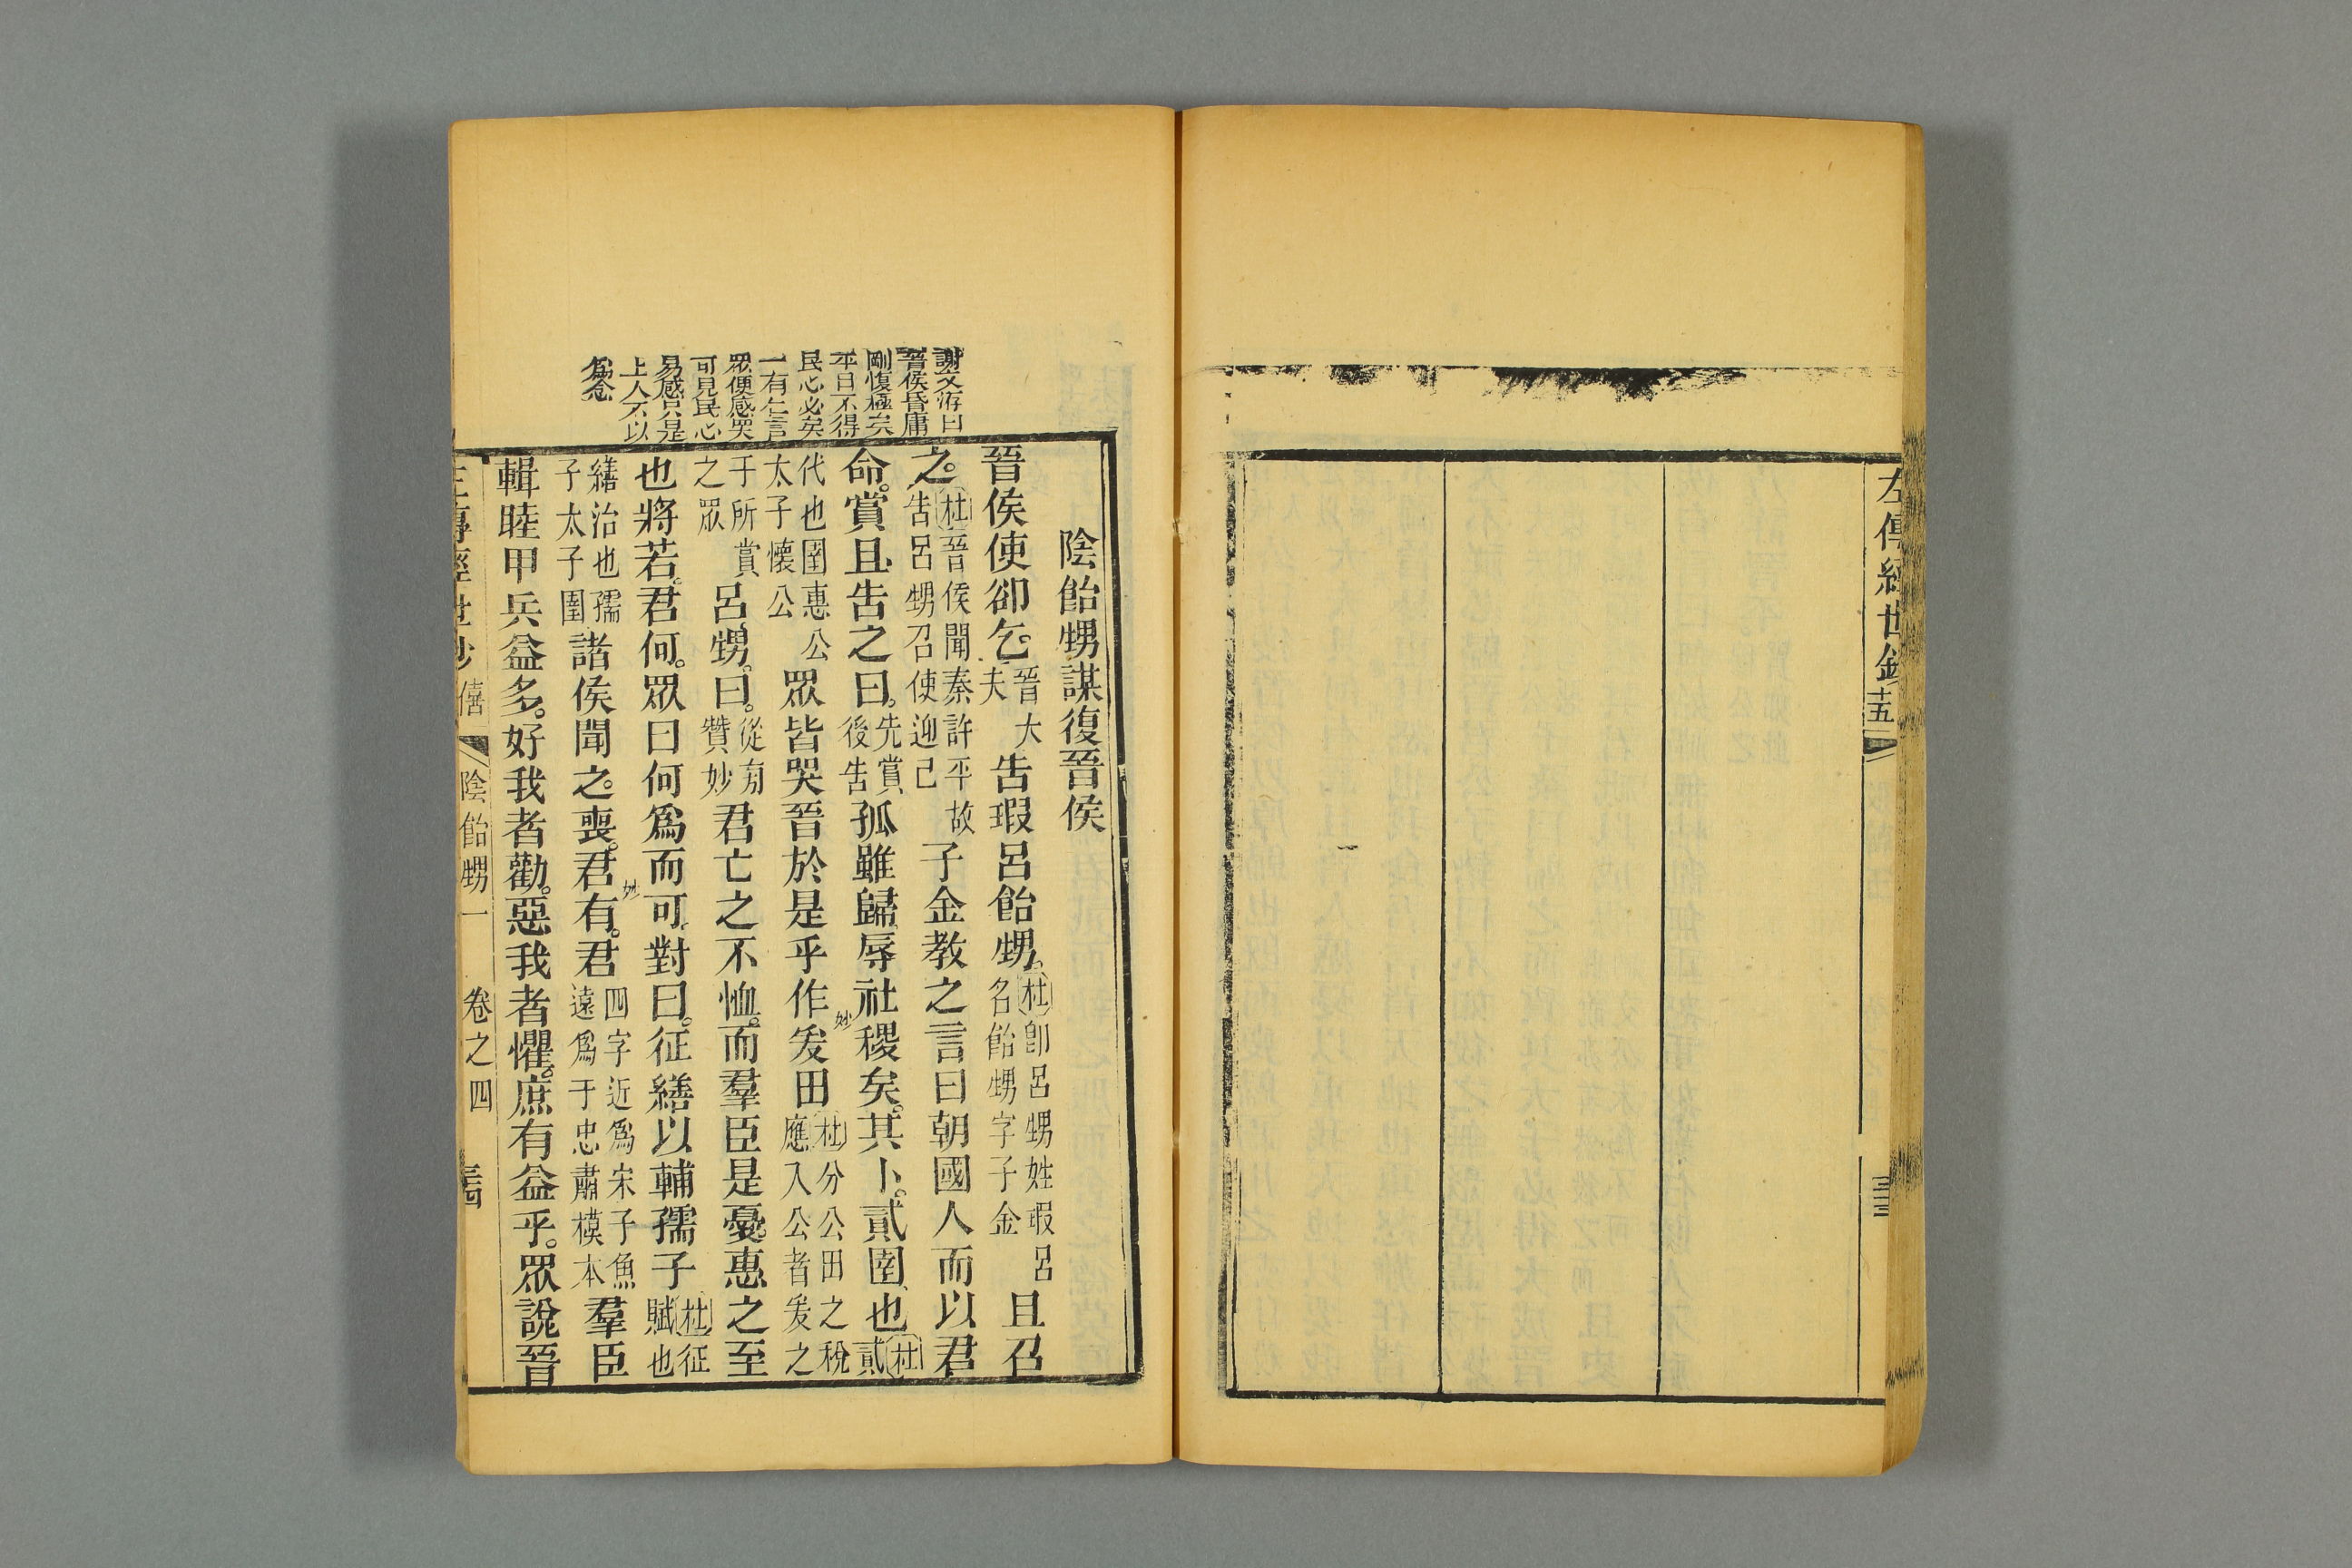 左傳經世鈔
十五
三三
謝文洊曰
晉侯昏庸
剛愎極矣
平日不得
民心必矣
一有乞言
眾便感哭
可見民心
易感只是
上人不以
為念
陰飴甥謀復晉侯
晉侯使郤乞晉大夫告瑕呂飴甥杜卽呂甥姓瑕呂名飴甥字子金且召
之杜晉侯聞秦許平故告呂甥召使迎己子金教之言曰朝國人而以君
命賞且告之曰先賞後告孤雖歸辱社稷矣其卜貳圉也杜貳
代也圉惠公太子懷公眾皆哭晉於是乎作爰田妙杜分公田之稅應入公者爰之
于所賞之眾呂甥曰從旁贊妙君亡之不恤而羣臣是憂惠之至
也將若君何眾曰何爲而可對曰征繕以輔孺子杜征賦也
繕治也孺子太子圉諸侯聞之喪君有君妙四字近爲宋子魚遠爲于忠肅模本羣臣
輯睦甲兵益多好我者勸惡我者懼庶有益乎眾說晉
左傳經世鈔 僖 陰飴甥一 卷之四
三四